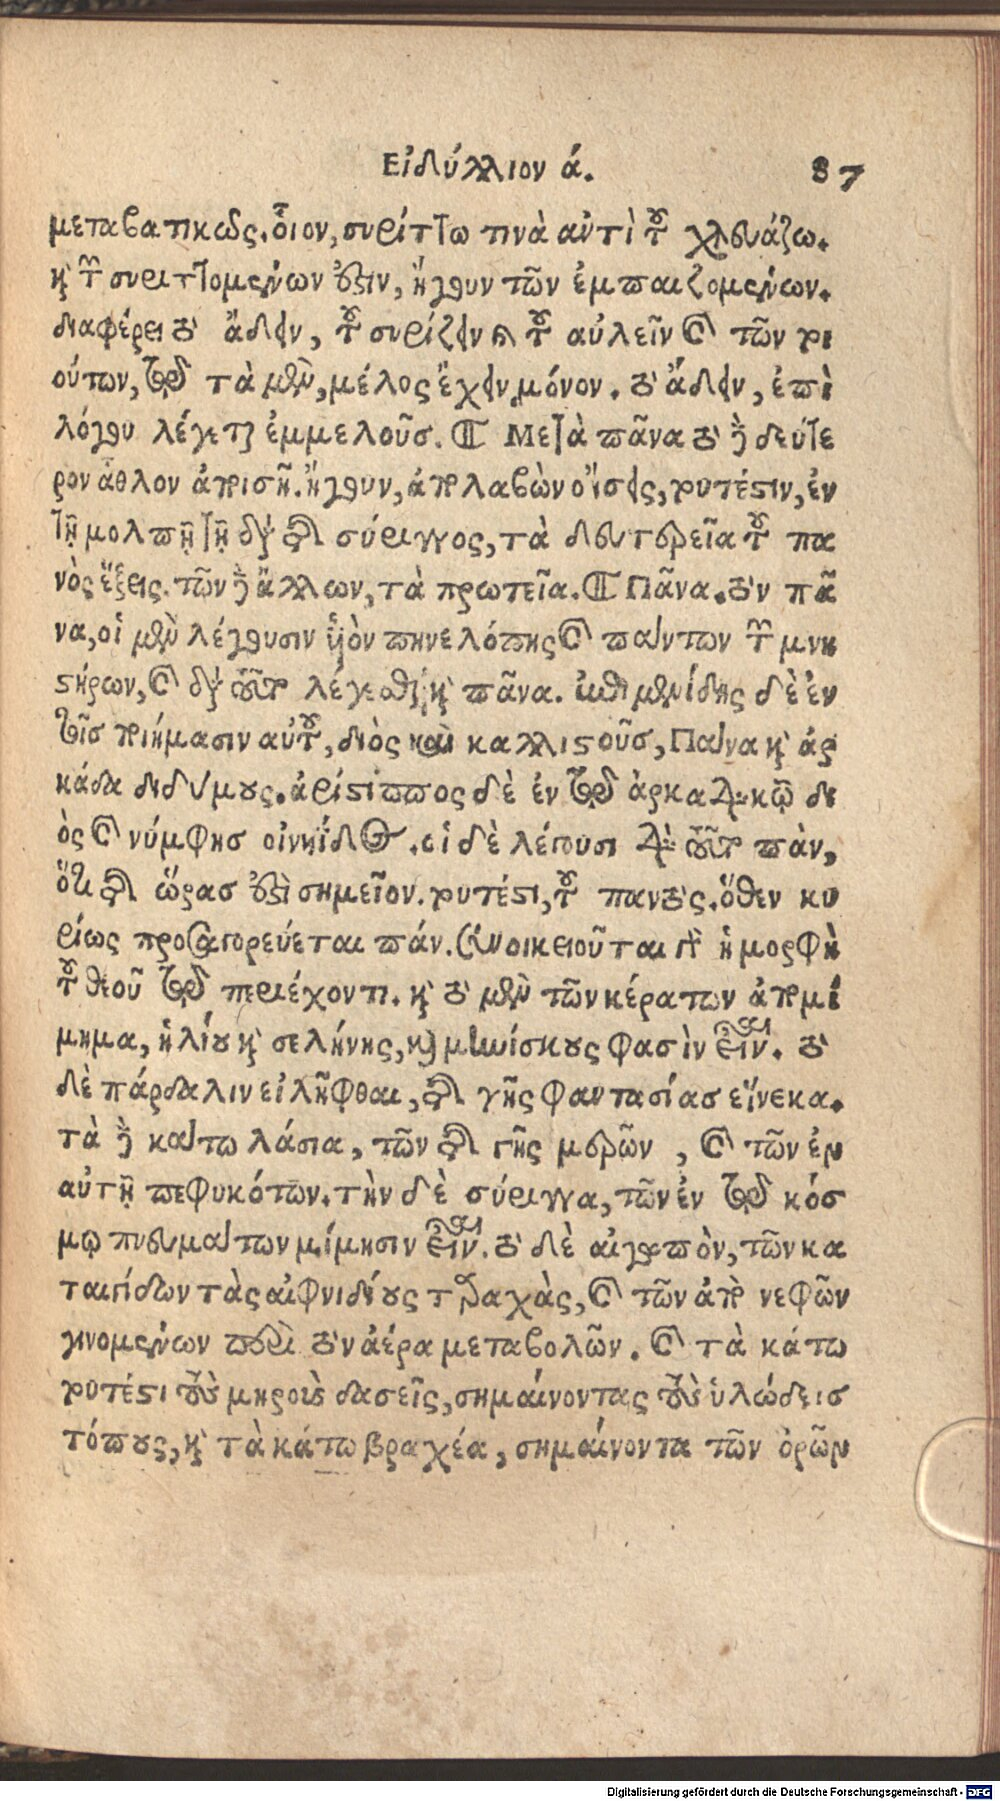 Εἰδύλλιον ά. 87
μεταβατικῶς. οἷον, συρίττω τινὰ ἀντὶ τοῦ χλευάζω.
καὶ τῶν συριττομένων ἐστὶν, ἤγουν τῶν ἐμπαιζομένων.
διαφέρει τὸ ᾄδειν, τοῦ συρίζειν καὶ τοῦ αὐλεῖν καὶ τῶν τοι
ούτων, τῷ τὰ μὲν, μέλος ἔχειν μόνον. τὸ ᾄδειν, ἐπὶ
λόγου λέγεται ἐμμελοῦσ. Μετὰ πᾶνα τὸ δὲ δεύτε
ρον ἆθλον ἀποισῆ. ἤγουν, ἀπολαβὼν οἴσεις, τουτέστιν, ἐν
τῇ μολπῇ τῇ διὰ τῆς σύριγγος, τὰ δευτερεῖα τοῦ πα
νὸς ἕξεις. τῶν δὲ ἄλλων, τὰ πρωτεῖα. Πᾶνα. τὸν πᾶ
να, οἱ μὲν λέγουσιν υἱὸν πηνελόπης καὶ πάντων τῶν μνη
στήρων, καὶ διὰ τοῦτο λέγεσθαι καὶ πᾶνα. ἐπιμενίδης δὲ ἐν
τοῖσ ποιήμασιν αὐτοῦ, διὸς καὶ καλλιστοῦσ, Πάνα καὶ ἀρ
κάδα διδύμους. ἀρίστιππος δὲ ἐν τῷ ἀρκαδικῷ δι
ὸς καὶ νύμφησ οἰνηίδος. οἱ δὲ λέγουσι διὰ τοῦτο πὰν,
ὅτι τῆς ὥρασ ἐστὶ σημεῖον. τουτέστι, τοῦ παντός. ὅθεν κυ
ρίως προσαγορεύεται πάν. συνοικειοῦται γὰρ ἡ μορφὴ
τοῦ θεοῦ τῷ περιέχοντι. καὶ τὸ μὲν τῶν κέρατων ἀπομί
μημα, ἡλίου καὶ σελήνης, καὶ μηνίσκους φασὶν εἶναι. τὸ
δὲ πάρδαλιν εἰλῆφθαι, τῆς γῆς φαντασίασ εἵνεκα.
τὰ δὲ κάτω λάσια, τῶν τῆς γῆς μερῶν, καὶ τῶν ἐν
αὐτῇ πεφυκότων. τὴν δὲ σύριγγα, τῶν ἐν τῷ κόσ
μῳ πνευμάτων μίμησιν εἶναι. τὸ δὲ αἰγοπὸν, τῶν κα
ταιγίδων τὰς αἰφνιδίους ταραχὰς, καὶ τῶν ἀπὸ νεφῶν
γινομένων περὶ τὸν ἀέρα μεταβολῶν. καὶ τὰ κάτω
τουτέστι τοὺς μηροὺς δασεῖς, σημαίνοντας τοὺς ὑλώδεισ
τόπους, καὶ τὰ κάτω βραχέα, σημαίνοντα τῶν ὀρῶν
Digitalisierung gefördert durch die Deutsche Forschungsgemeinschaft - DFG